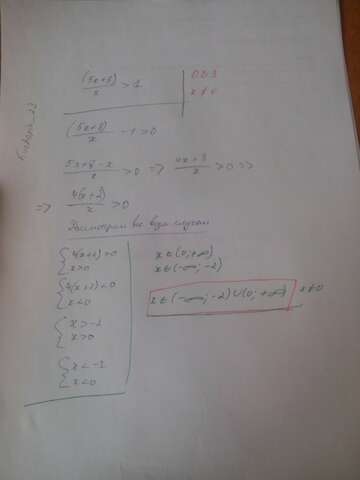 (5x+8)/x > 1
ОДЗ
x ≠ 0
(5x+8)/x - 1 > 0
(5x+8-x)/x > 0 => (4x+8)/x > 0 =>
=> 4(x+2)/x > 0
Рассмотрим все случаи
{ 4(x+2)>0
x>0
{ 4(x+2)<0
x<0
{ x>-2
x>0
{ x<-2
x<0
x ∈ (0; +∞)
x ∈ (-∞; -2)
x ∈ (-∞; -2) ∪ (0; +∞) x ≠ 0